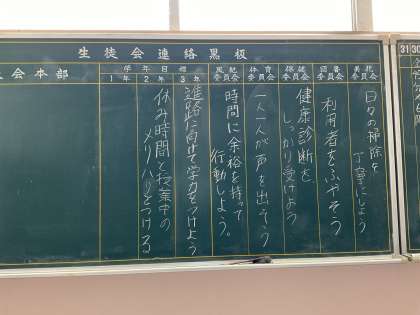 生徒会連絡黒板
会本部
学年目標
1年
2年
3年
風紀委員会
体育委員会
保健委員会
図書委員会
美化委員会
31
30
日々の掃除を
丁寧にしよう
利用者をふやそう
健康診断を
しっかり受けよう
一人一人が声を出そう
時間に余裕を持って
行動しよう。
進路に向けて学力をつけよう
休み時間と授業中の
メリハリをつける